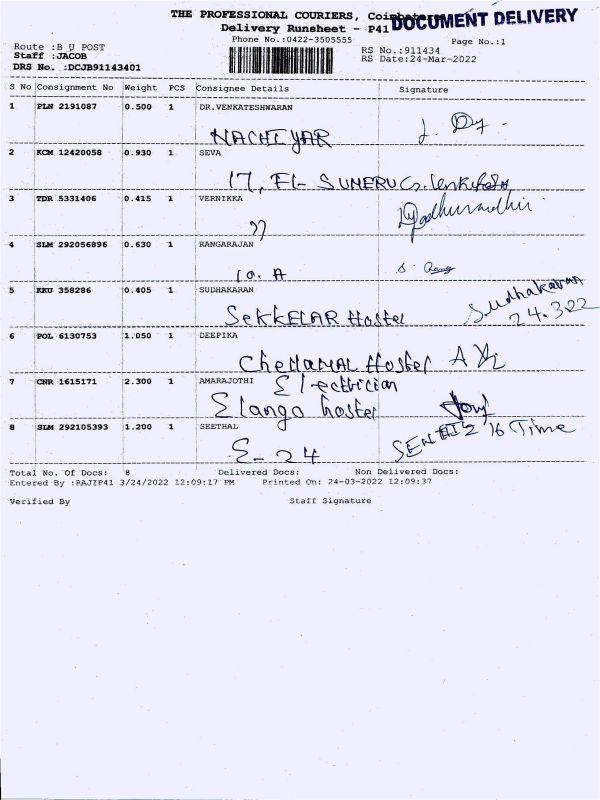 THE PROFESSIONAL COURIERS, Coimbatore
DOCUMENT DELIVERY
Delivery Runsheet - P41
Phone No.:0422-3505555
Page No.:1
Route :B U POST
RS No.:911434
Staff :JACOB
RS Date:24-Mar-2022
DRS No. :DCJB91143401
S No Consignment No Weight PCS Consignee Details Signature
1 PLN 2191087 0.500 1 DR.VENKATESHWARAN
NACHIYAR
2 KCM 12420058 0.930 1 SEVA
17, EL- SUMERU
3 TDR 5331406 0.415 1 VERNIKKA
4 SLM 292056896 0.630 1 RANGARAJAN
10. A
5 KKU 358286 0.405 1 SUDHAKARAN
SEKKELAR Hostel Sudhakaran
24.3.22
6 POL 6130753 1.050 1 DEEPIKA
CheLLAMAL Hostel
7 CNR 1615171 2.300 1 AMARAJOTHI
Electrician
Elango hostel
8 SLM 292105393 1.200 1 SEETHAL
E- 24 Time
Total No. Of Docs: 8 Delivered Docs: Non Delivered Docs:
Entered By :RAJIP41 3/24/2022 12:09:17 PM Printed On: 24-03-2022 12:09:37
Verified By Staff Signature